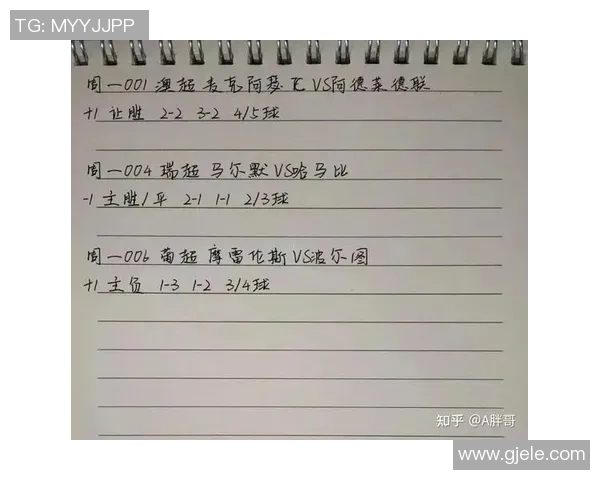 TG: MYYJJPP
周一001 澳超 麦克阿瑟 VS阿德莱德联
+1 让胜 2-2 3-2 4/5球
周一004 瑞超 马尔默VS哈马比
-1 主胜/平 2-1 1-1 2/3球
周一006 葡超 摩雷伦斯VS波尔图
+1 主负 1-3 1-2 3/4球
知乎 @A胖哥
www.gjele.com